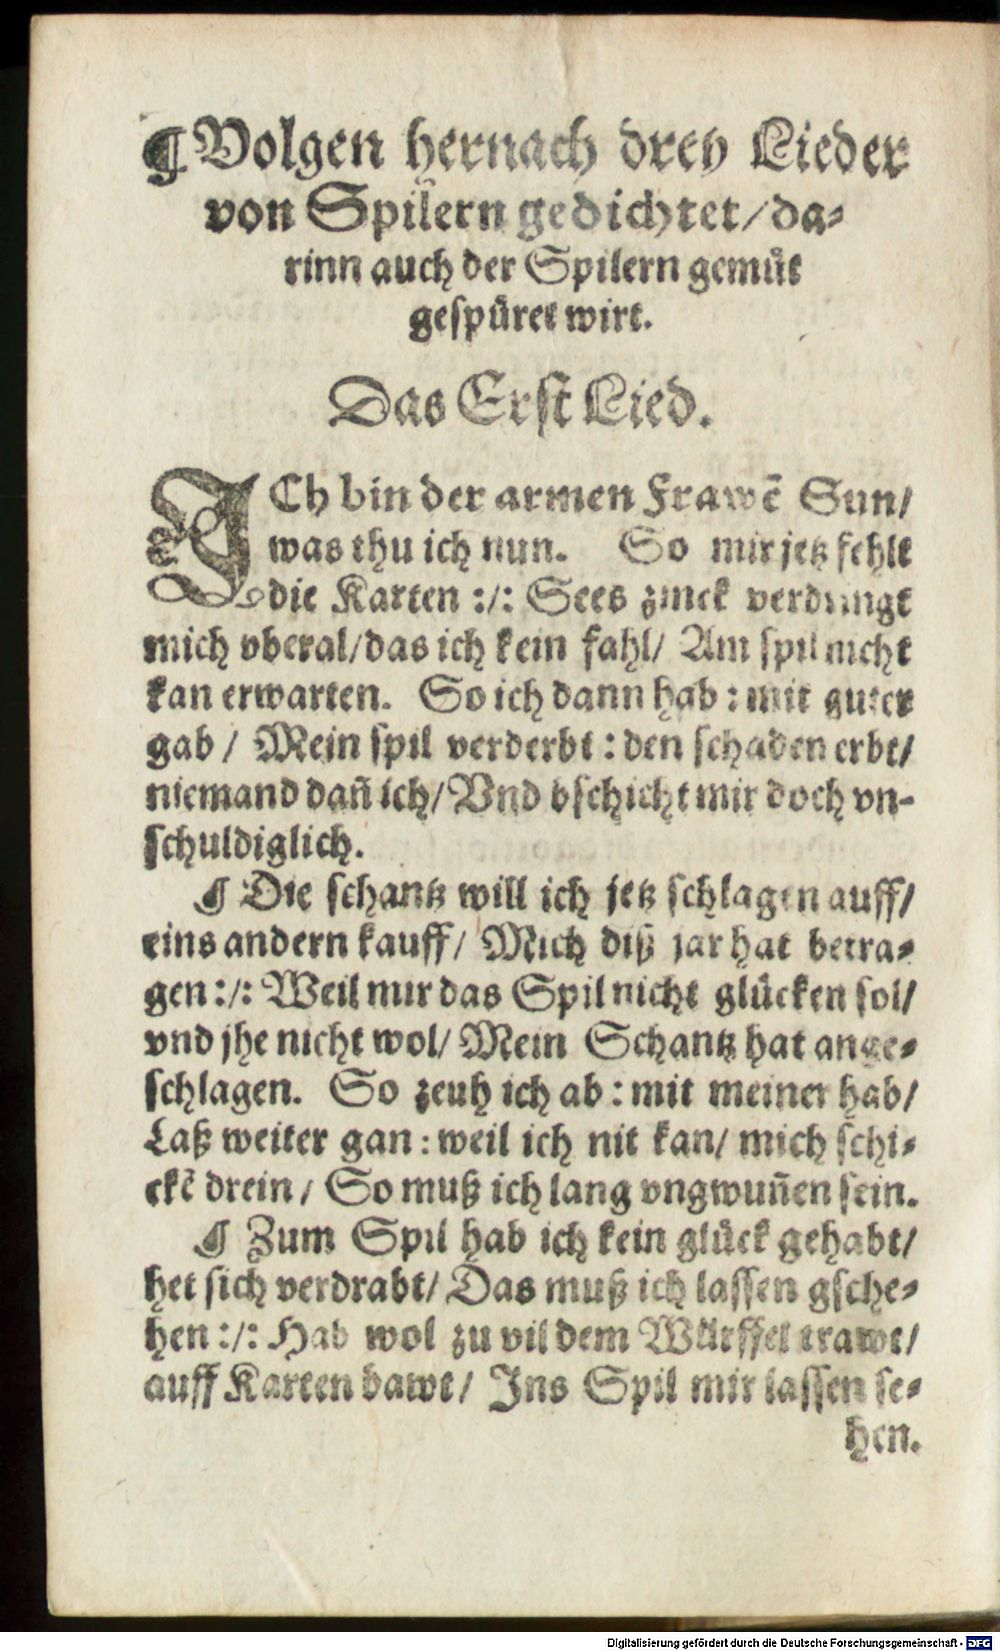 ¶ Volgen hernach drey Lieder
von Spilern gedichtet/ da⸗
rinn auch der Spilern gemuͤt
gespuͤret wirt.
Das Erst Lied.
ICh bin der armen Frawẽ Sun/
was thu ich nun. So mir jetz fehlt
die Karten :/: Sees zinck verdringt
mich vberal/ das ich kein fahl/ Am spil nicht
kan erwarten. So ich dann hab : mit guter
gab / Mein spil verderbt : den schaden erbt/
niemand dañ ich/ Vnd bschicht mir doch vn-
schuldiglich.
¶ Die schantz will ich jetz schlagen auff/
eins andern kauff/ Mich diß jar hat betra⸗
gen :/: Weil mir das Spil nicht gluͤcken sol/
vnd jhe nicht wol/ Mein Schantz hat ange⸗
schlagen. So zeuh ich ab : mit meiner hab/
Laß weiter gan : weil ich nit kan/ mich schi⸗
ckẽ drein / So muß ich lang vngwuñen sein.
¶ Zum Spil hab ich kein gluͤck gehabt/
het sich verdrabt/ Das muß ich lassen gsche⸗
hen :/: Hab wol zu vil dem Wuͤrffel trawt/
auff Karten bawt/ Ins Spil mir lassen se⸗
hen.
Digitalisierung gefördert durch die Deutsche Forschungsgemeinschaft - DFG